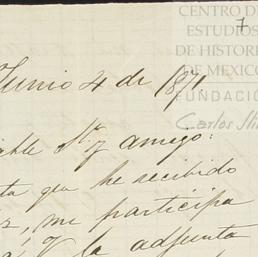 CENTRO DE
ESTUDIOS
DE HISTORI
DE MEXICO
FUNDACIÓ
Carlos Sli
7
Junio 4 de 1871,
able Sr. y amigo:
ta que he recibido
me participa
y la adjunta